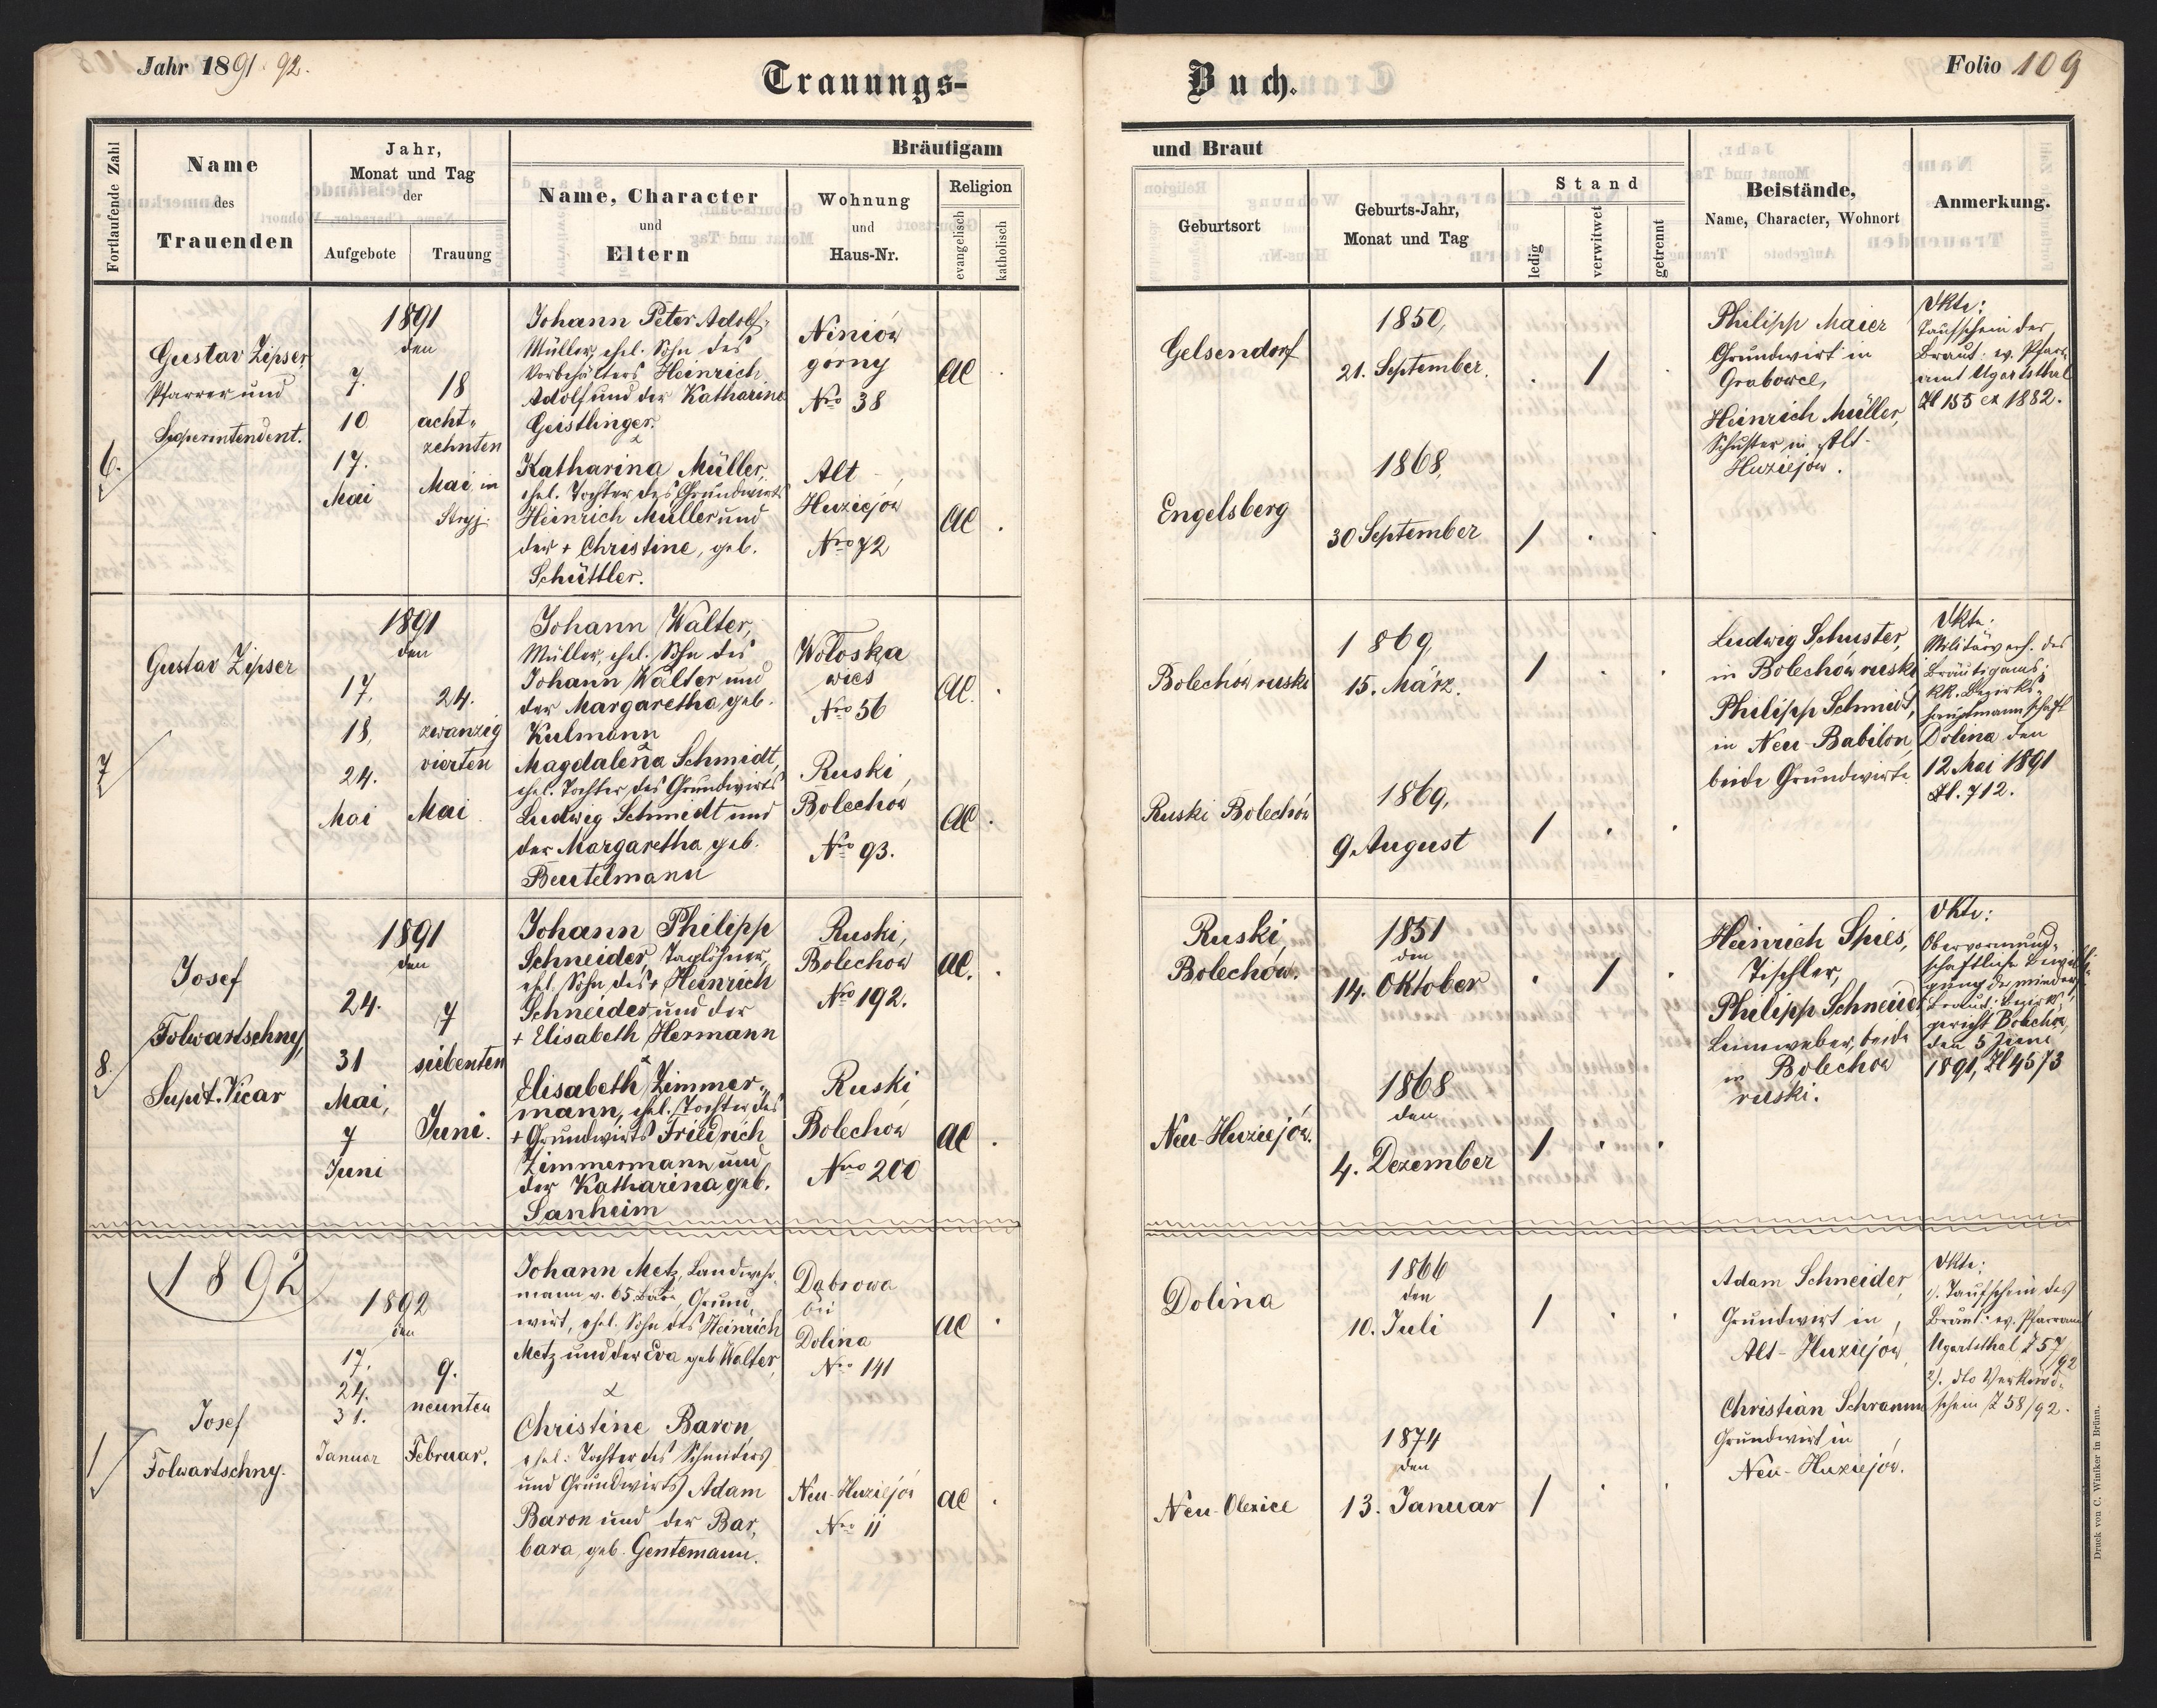 Jahr 1891. 92.
Trauungs-
Buch.
Folio 109
Fortlaufende Zahl
Name
des
Trauenden
Jahr,
Monat und Tag
der
Aufgebote
Trauung
Bräutigam
Name, Character
und
Eltern
Wohnung
und
Haus-Nr.
Religion
evangelisch
katholisch
und Braut
Geburtsort
Geburts-Jahr,
Monat und Tag
Stand
ledig
verwitwet
getrennt
Beistände,
Name, Character, Wohnort
Anmerkung.
6.
Gustav Zipser,
Pfarrer und
Superintendent.
1891
den
7.
10
17.
Mai
18
acht-
zehnten
Mai in
Stryj.
Johann Peter Adolf,
Müller, ehel. Sohn des
Vorbehälters Heinrich
Adolf und der Katharine
Geistlinger.
Niniów
gorny
Nro 38
ae
Gelsendorf
1850,
21. September.
1
Philipp Maier
Grundwirt in
Grabowce,
Heinrich Müller,
Schuster in Alt-
Huziejów.
Akte:
Taufschein der
Braut: ev. Pfarr-
amt Ugartsthal
Zl 155 ex 1882.
Katharina Müller,
ehel. Tochter des Grundwirts
Heinrich Müller und
der + Christine, geb.
Schüttler.
Alt
Huziejów
Nro 72
ae
Engelsberg
1868,
30 September
1
7
Gustav Zipser
1891
den
17.
18.
24.
Mai
24.
zwanzig
vierten
Mai
Johann Walter,
Müller, ehel. Sohn des
Johann Walter und
der Margaretha, geb.
Kulmann
Wołoska
wies
Nro 56
ae.
Bolechów ruski
1869,
15. März.
1
Ludwig Schuster,
in Bolechów ruski
Philipp Schmidt,
in Neu-Babilon,
beide Grundwirte
Akte:
Militärverh. des
Bräutigams:
kk. Bezirks-
hauptmannschaft
Dolina den
12 Mai 1891
Zl. 712.
Magdalena Schmidt,
ehel. Tochter des Grundwirts
Ludwig Schmidt und
der Margaretha geb.
Beutelmann
Ruski
Bolechów
Nro 93.
ae
Ruski Bolechów
1869,
9. August
1
8.
Josef
Folwartschny,
Supdt. Vicar
1891
den
24.
31
Mai,
7
Juni
7
siebenten
Juni.
Johann Philipp
Schneider, Taglöhner,
ehel. Sohn des + Heinrich
Schneider und der
+ Elisabeth Hermann
Ruski,
Bolechow
Nro 192.
ae.
Ruski,
Bolechów.
1851
den
14. Oktober
1
Heinrich Spies,
Tischler,
Philipp Schneider
Leinweber, beide
in Bolechow
ruski.
Akte:
Obervormund-
schaftliche Bewilli-
gung der minderj.
Braut: Bezirks-
gericht Bolechow,
den 5 Juni
1891, Zl 4573
Elisabeth Zimmer-
mann, ehel. Tochter des
+ Grundwirts Friedrich
Zimmermann und
der Katharina, geb.
Sanheim
Ruski
Bolechów
Nro 200
ae
Neu-Huziejów.
1868
den
4. Dezember
1
1892
1
Josef
Folwartschny.
1892
den
17.
24.
31.
Januar
9.
neunten
Februar.
Johann Metz, Landwehr-
mann v. 65. Baon, Grund-
wirt, ehel. Sohn des Heinrich
Metz und der Eva geb Walter,
Dąbrowa
bei
Dolina
Nro 141
ae
Dolina
1866
den
10. Juli
1
Adam Schneider,
Grundwirt in
Alt-Huziejów
Christian Schramm
Grundwirt in
Neu-Huziejów.
Akte:
1). Taufschein des
Bräut: ev. Pfarramt
Ugartsthal Z 57/92
2). dto Verkünd-
schein Z 58/92.
Christine Baron,
ehel. Tochter des Schneiders
und Grundwirts Adam
Baron und der Bar-
bara, geb. Gentemann.
Neu-Huziejów
Nro 11
ae
Neu-Olexice
1874
den
13. Januar
1
Druck von C. Winiker in Brünn.